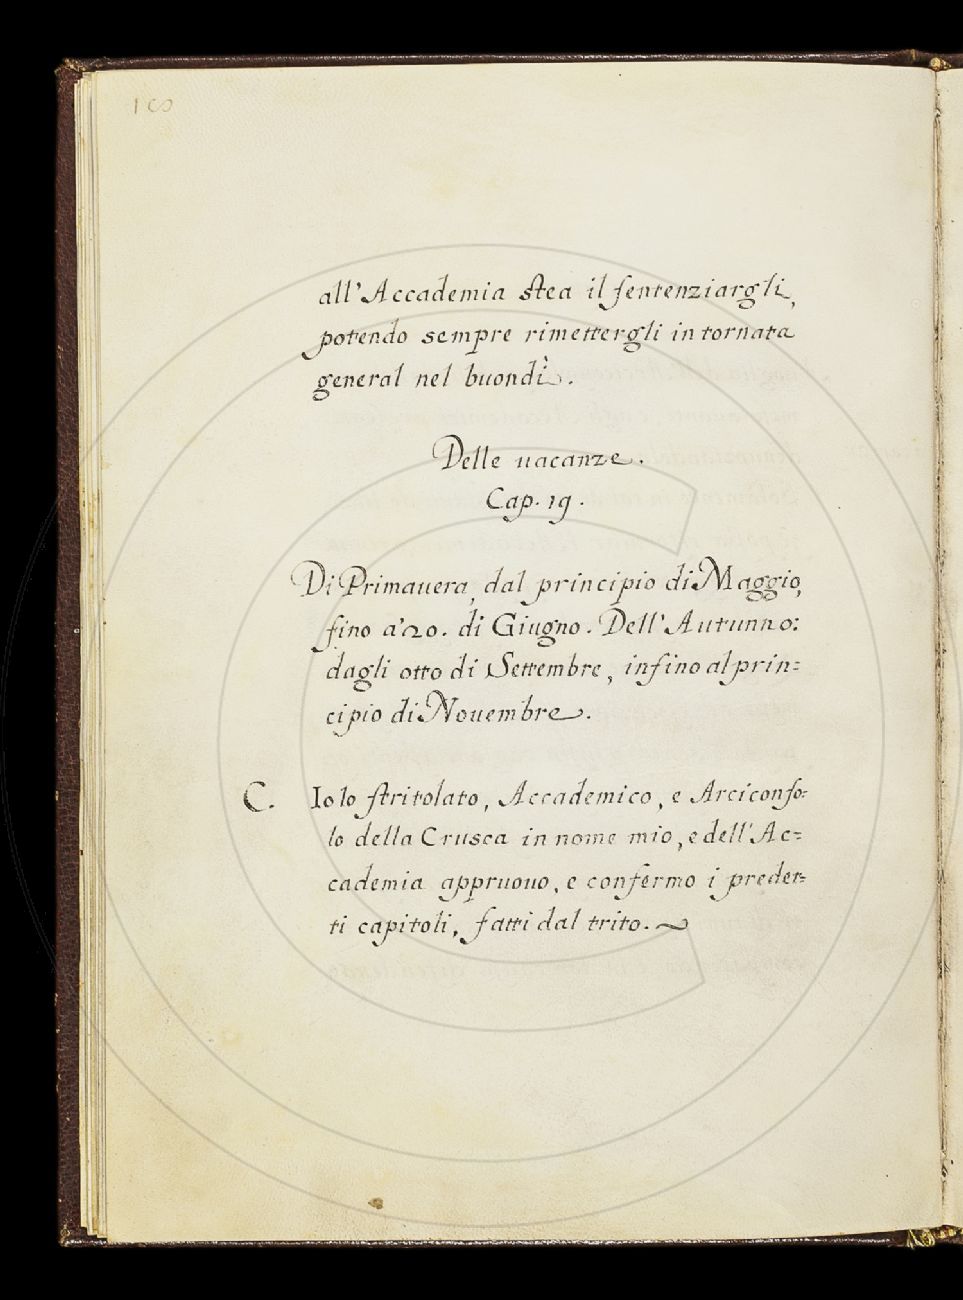 all'Accademia stea il sentenziargli,
potendo sempre rimettergli in tornata
general nel buondì.
Delle uacanze.
Cap. 19.
Di Primauera, dal principio di Maggio,
fino a' 20. di Giugno. Dell'Autunno:
dagli otto di Settembre, infino al prin=
cipio di Nouembre.
C. Io lo stritolato, Accademico, e Arciconso=
lo della Crusca in nome mio, e dell'Ac=
cademia appruouo, e confermo i predet=
ti capitoli, fatti dal trito.